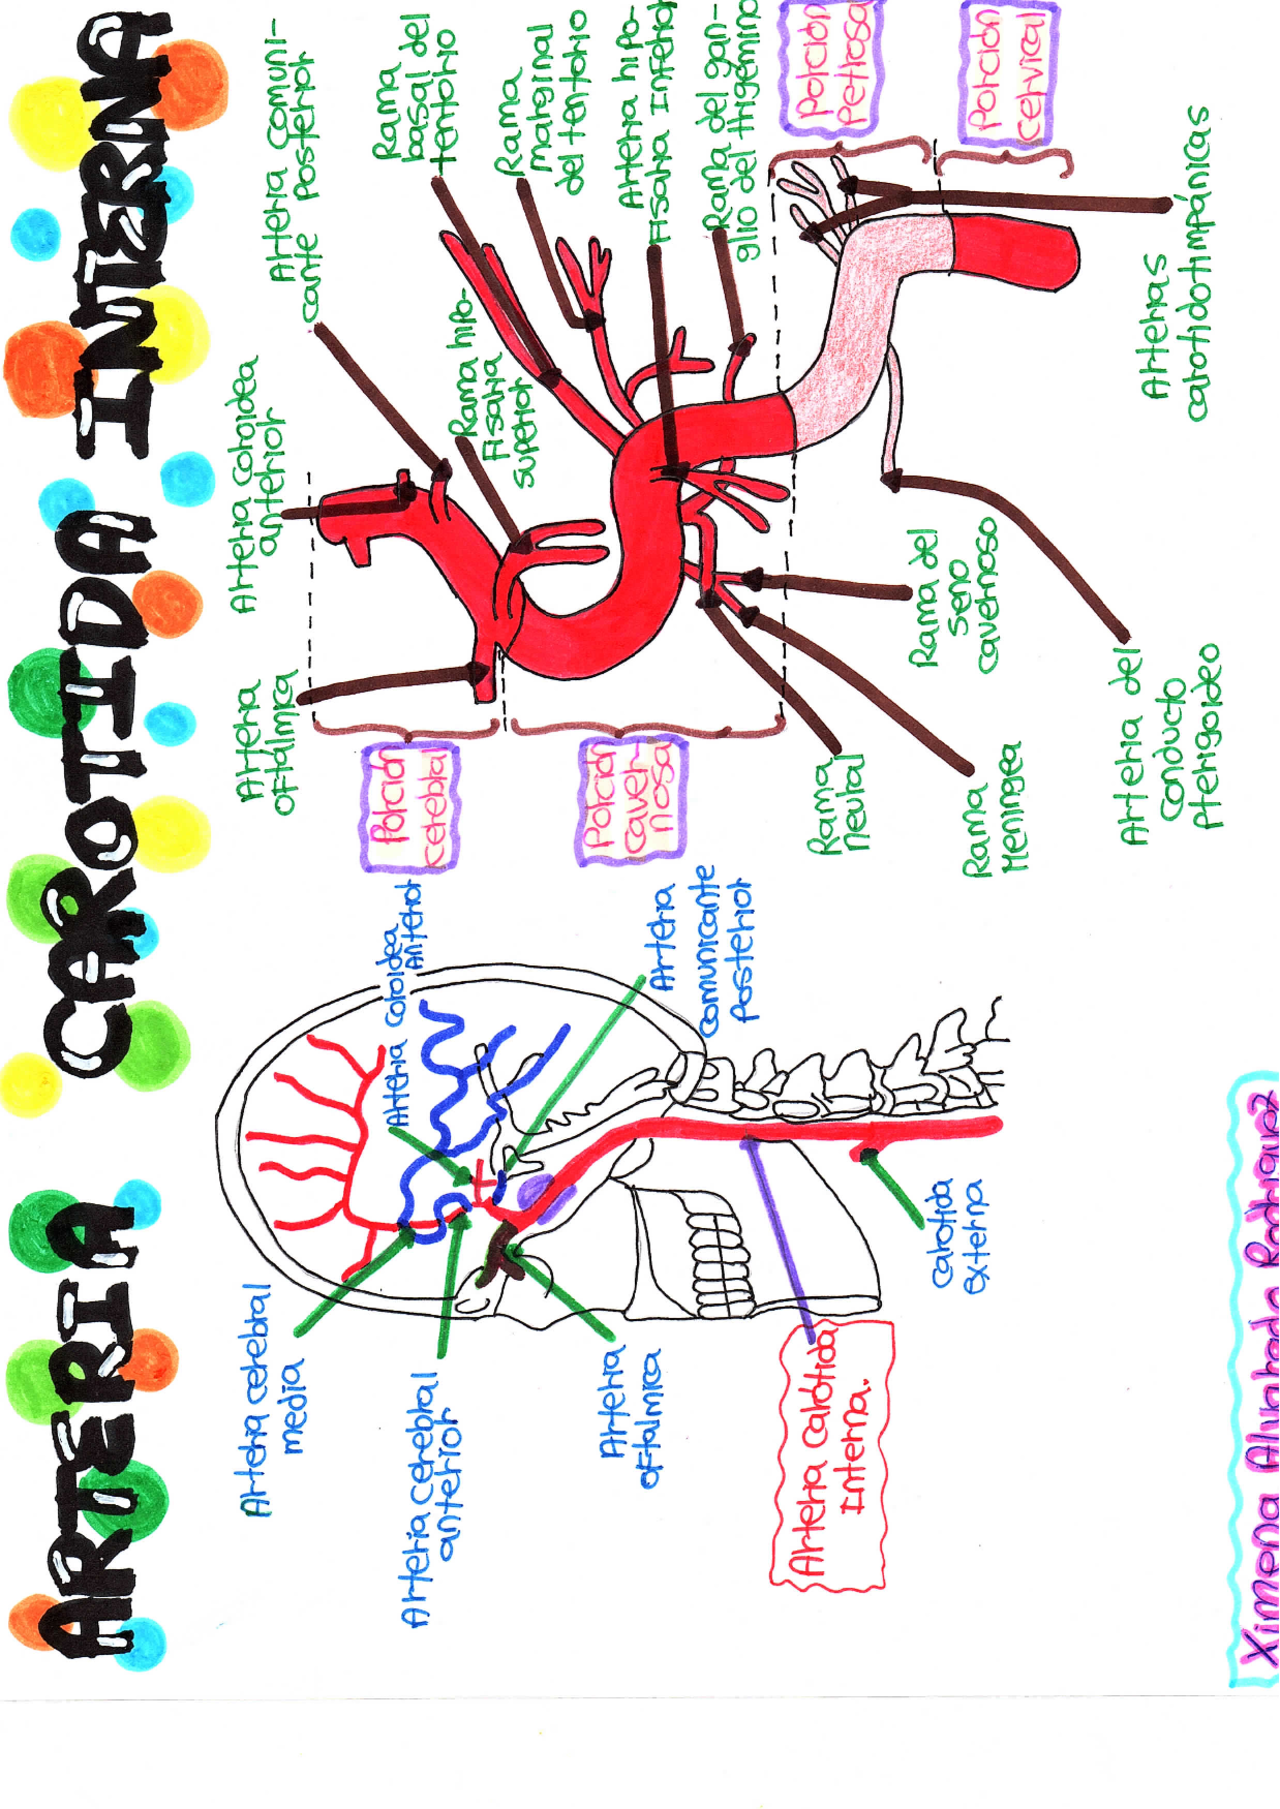 ARTERIA CAROTIDA INTERNA
Arteria cerebral
media
Arteria cerebral
anterior
Arteria
oftalmica
Arteria carotida
Interna.
carotida
externa
Arteria coroidea
Anterior
Arteria
comunicante
Posterior
Porción
cerebral
Porción
caver-
nosa
Arteria
oftalmica
Arteria coroidea
anterior
Arteria comuni-
cante Posterior
Rama hipo-
Fisaria
superior
Rama
basal del
tentorio
Rama
marginal
del tentorio
Arteria hipo-
Fisaria Inferior
Rama del gan-
glio del trigémino
Porción
Petrosa
Porción
cervical
Arterias
carotidotimpánicas
Rama del
seno
cavernoso
Rama
neural
Rama
Meningea
Arteria del
conducto
Pterigoideo
Ximena Alvarado Rodriguez